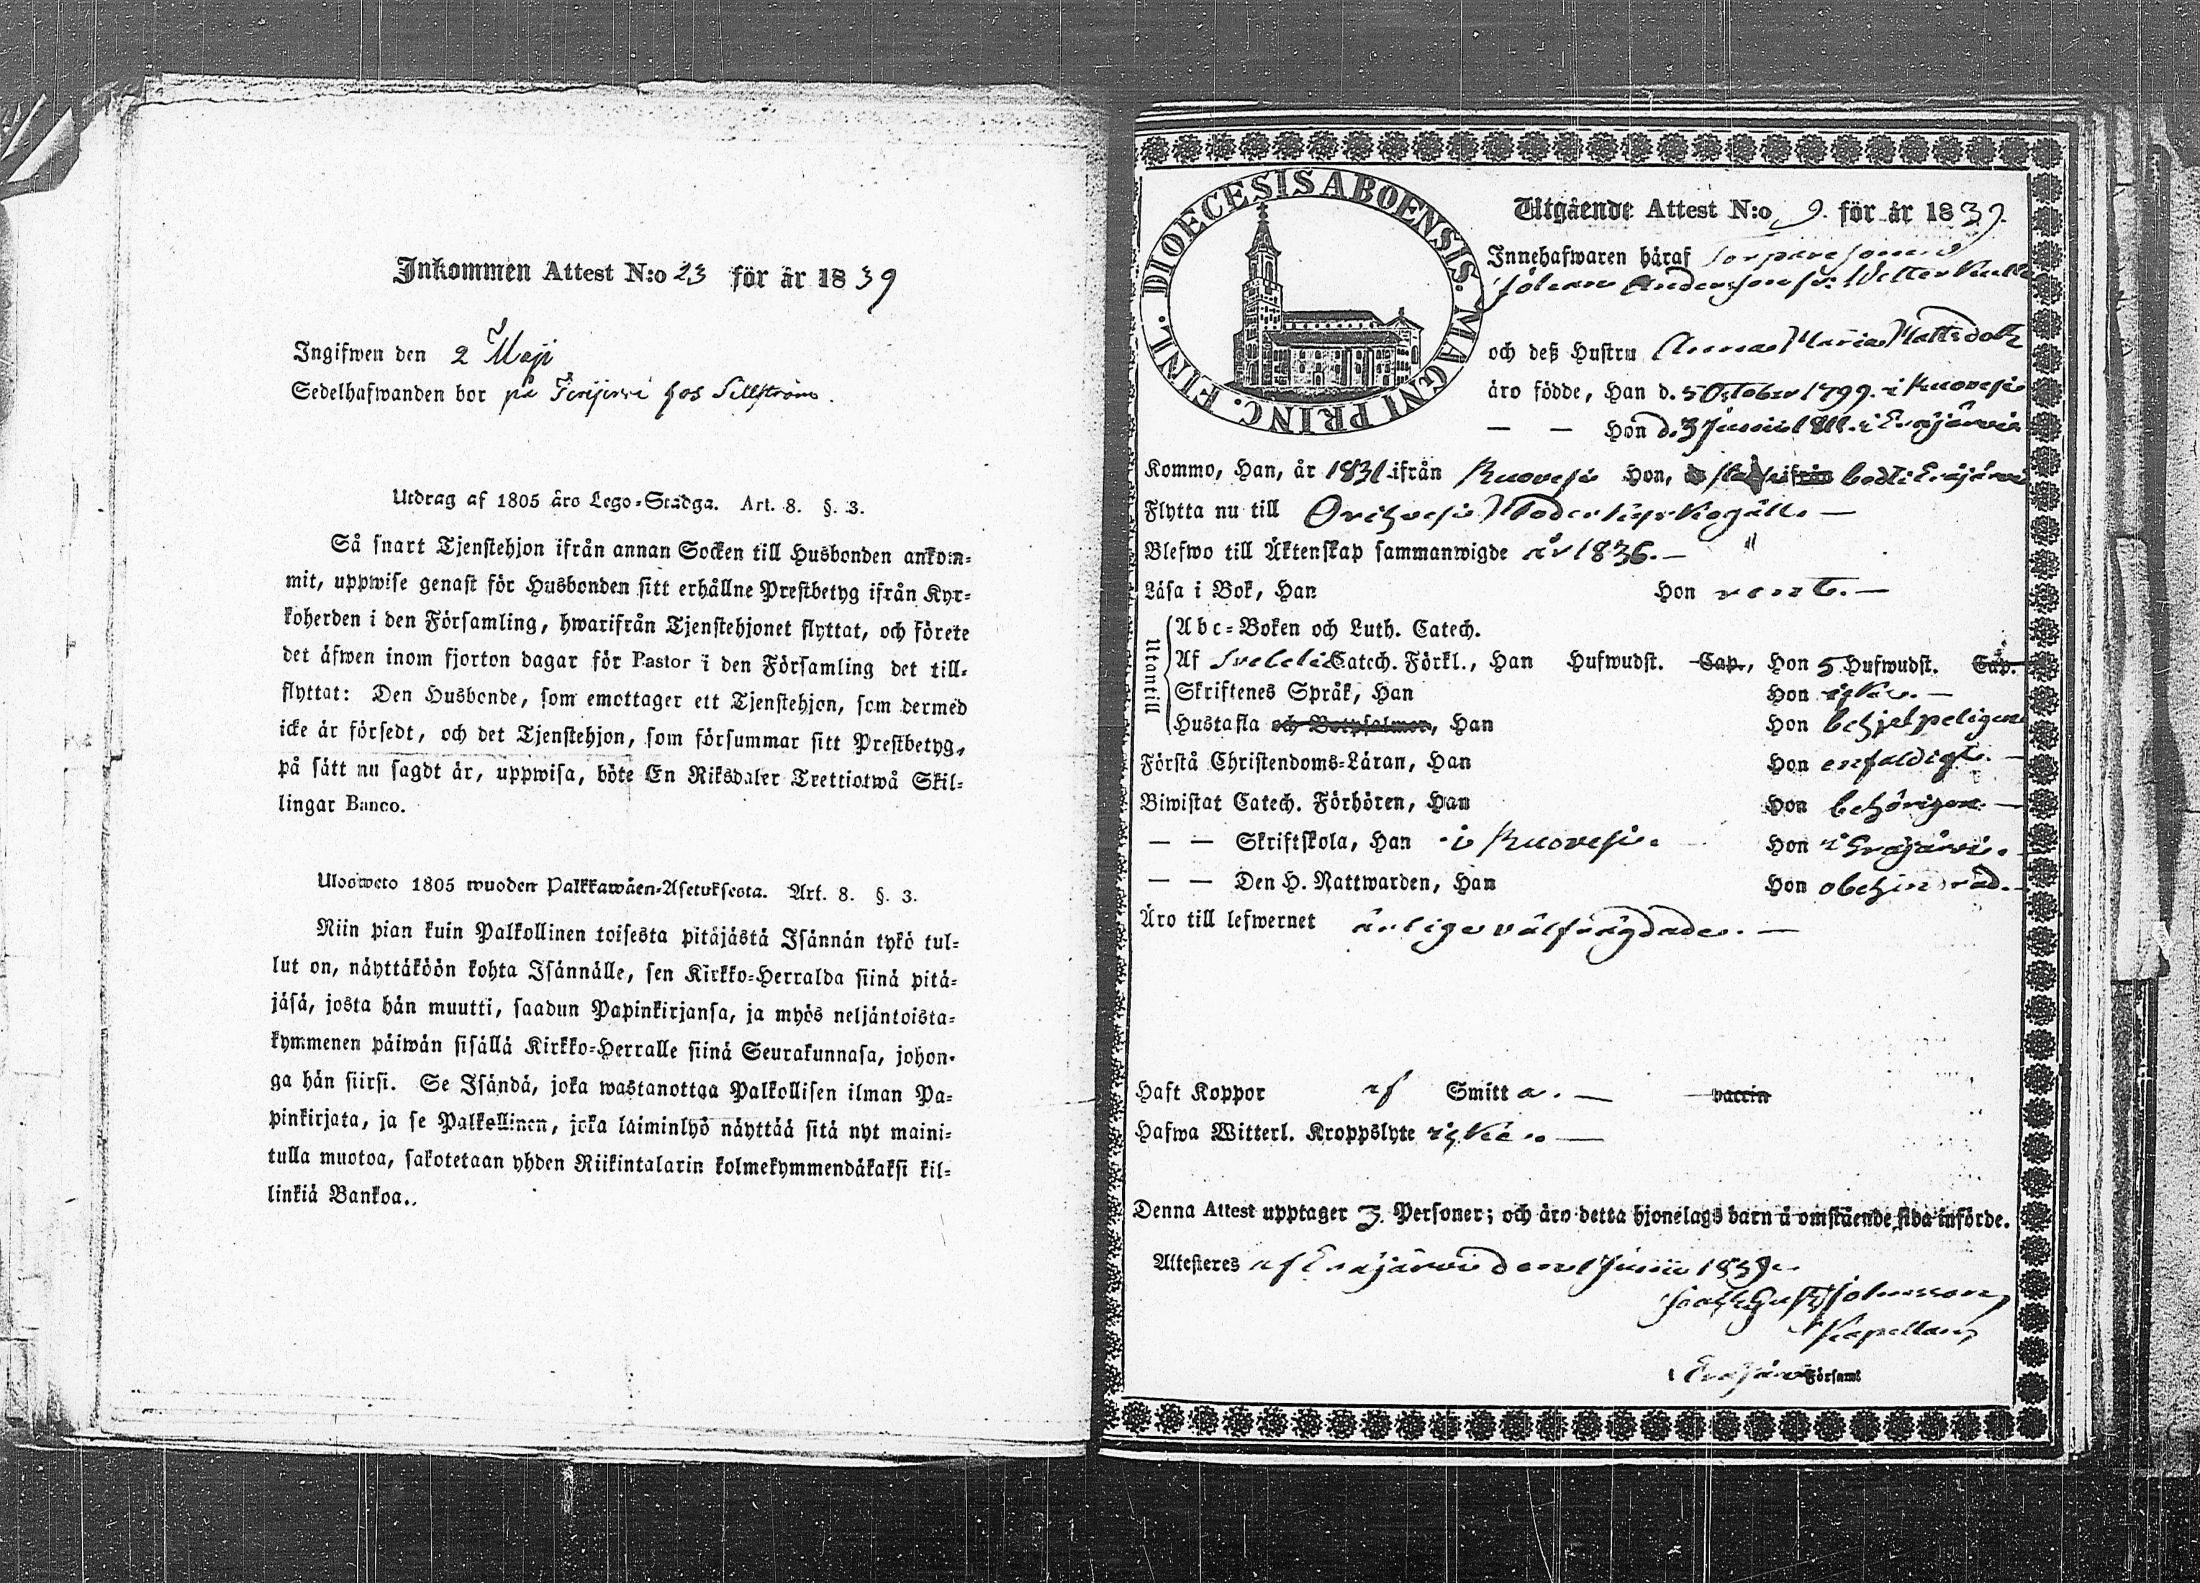 Inkommen Attest N:o 23 för år 1839
Ingifwen den 2 Maji
Sedelhafwanden bor på hos Sellström.
Utdrag af 1805 års Lego-Stadga. Art. 8. §. 3.
Så snart Tjenstehjon ifrån annan Socken till Husbonden ankom-
mit, uppwise genast för Husbonden sitt erhållne Prestbetyg ifrån Kyr-
koherden i den Församling, hwarifrån Tjenstehjonet flyttat, och förete
det äfwen inom fjorton dagar för Pastor i den Församling det till-
flyttat: Den Husbonde, som emottager ett Tjenstehjon, som dermed
icke är försedt, och det Tjenstehjon, som försummar sitt Prestbetyg,
på sätt nu sagdt är, uppwisa, böte En Riksdaler Trettiotwå Skil-
lingar Banco.
Ulosweto 1805 wuoden Palkkawäen-Asetuksesta. Art. 8. §. 3.
Niin pian kuin Palkollinen toisesta pitäjästä Isännän tykö tul-
lut on, näyttäköön kohta Isännälle, sen Kirkko-Herralda siinä pitä-
jäsä, josta hän muutti, saadun Papinkirjansa, ja myös neljäntoista-
kymmenen päiwän sisällä Kirkko-Herralle siinä Seurakunnasa, johon-
ga hän siirsi. Se Isändä, joka wastanottaa Palkollisen ilman Pa-
pinkirjata, ja se Palkollinen, joka laiminlyö näyttää sitä nyt maini-
tulla muotoa, sakotetaan yhden Riikintalarin kolmekymmendäkaksi kil-
linkiä Bankoa.
DIOECESIS ABOENSIS. MAGNI PRINC. FINL.
Utgående Attest N:o 9. för år 1839.
Innehafwaren häraf
Johan Andersson
och deß Hustru Anna Maria Mattsdotr
äro födde, Han d. 5 October 1799. i Ruovesi
— — Hon d. 3 Junii 1811. i Eräjärvi
Kommo, Han, år 1831 ifrån Ruovesi Hon, född i Eräjärvi
Flytta nu till Orihvesi Moderkyrkogäll. —
Blefwo till Äktenskap sammanwigde år 1836. —
Läsa i Bok, Han Hon rent. —
Utantill
Abc-Boken och Luth. Catech.
Af Svebelii Catech. Förkl., Han Hufwudst. Cap., Hon 5 Hufwudst. Cap.
Skriftenes Språk, Han Hon
Hustafla och Botpsalmer, Han Hon behjelpeligen
Förstå Christendoms-Läran, Han Hon enfaldigt. —
Biwistat Catech. Förhören, Han Hon behörigen. —
— — Skriftskola, Han i Ruovesi. Hon i Eräjärvi.
— — Den H. Nattwarden, Han Hon obehindrad. —
Äro till lefwernet ärliga välfrägdade. —
Haft Koppor af Smitta. — vaccin
Hafwa Witterl. Kroppslyte icke. —
Denna Attest upptager 3. Personer; och äro detta hjonelags barn å omstående sida införde.
Attesteres af Eräjärvi den 1 Junii 1839.
Johansson,
Kapellan,
i Eräjärvi Församl